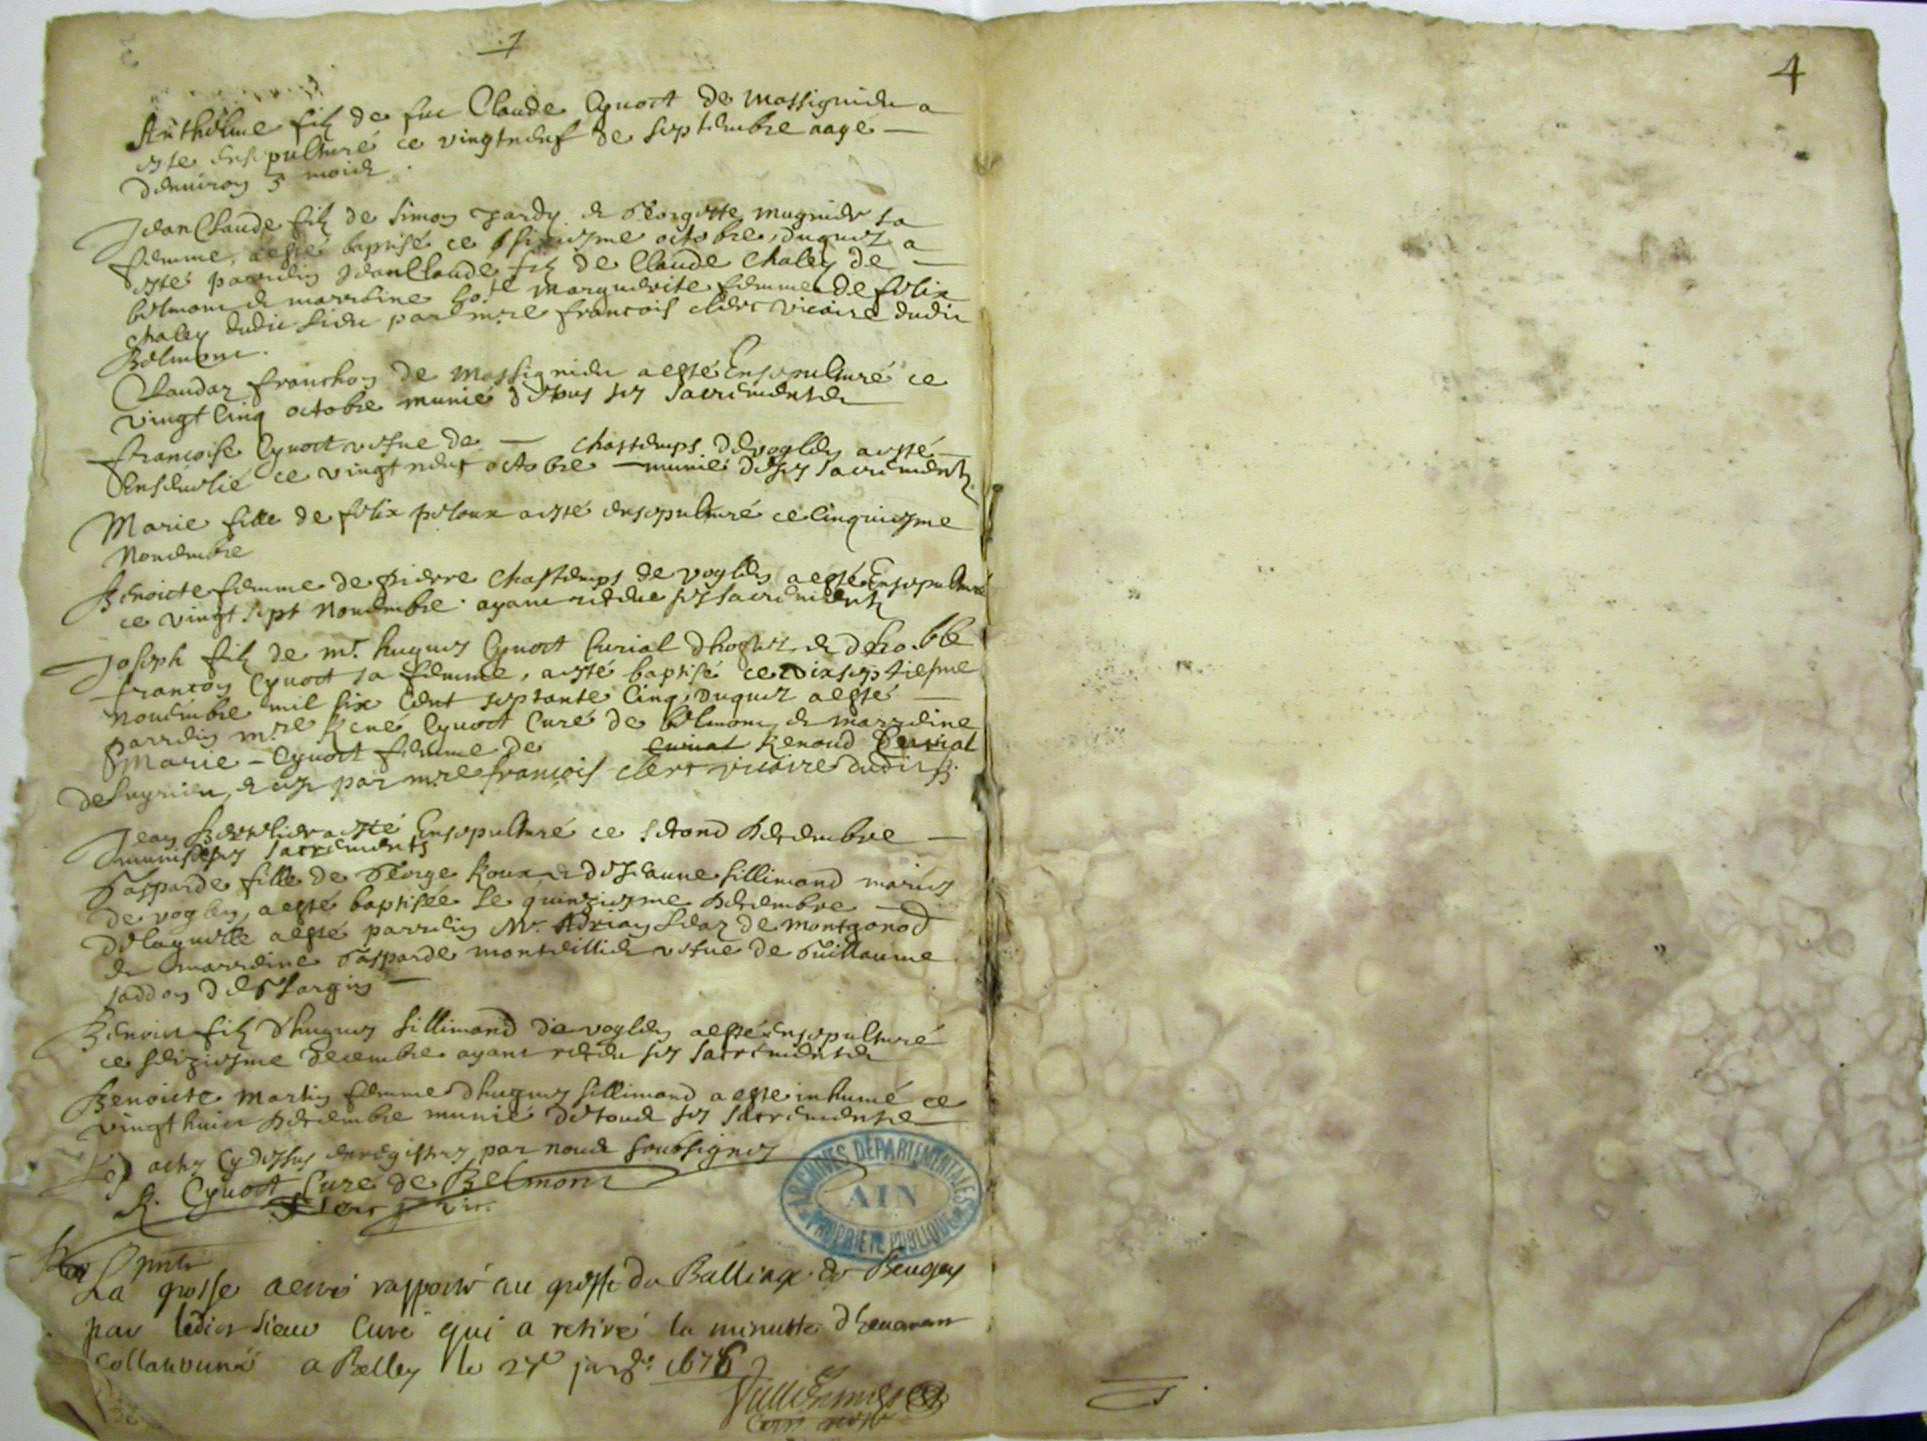 7
4
Anthelme filz de feu Claude Cynoct de Massignieu a
esté ensepulturé ce vingtneuf de septembre aagé
denuiron 5 mois
Jean Claude filz de Simon Jardy & Georgette Mugnier sa
femme, a esté baptisé ce sixiesme octobre, duquel a
esté parrein Jean Claude filz de Claude Chaley de
belmont & marreine Marguerite femme de felix
Chaley dudit lieu par mre francois Clerc vicaire dudit
Belmont.
Claudaz franchon de Massignieu a esté Ensepulturé ce
vingt cinq octobre munie de tous ses sacrements
francoise Cynoct vefue de — Chastemps de voglen a esté
Enseuelié ce vingt neuf octobre — munie de ses sacrements
Marie fille de felix peloux a esté ensepulturé ce cinquiesme
Nouembre
Benoicte femme de pierre Chastemps de voglen a esté Ensepulturé
ce vingt sept Nouembre ayant receu ses sacrements
Joseph filz de mr. hugues Cynoct Curial & de
francoy Cynoct sa femme, a esté baptisé ce dixseptiesme
Nouembre mil six Cent septante Cinq, duquel a esté
parrein mre René Cynoct Curé de belmont & marreine
Marie – Cynoct femme de Renoud Curial
de & ce par mre francois Clerc vicaire dudit
Jean a esté Ensepulturé ce second decembre
munis de ses sacrements
Gasparde fille de George Roux & de Jeanne sillimand mariés
de voglen, a esté baptisée le quinziesme decembre
De laquelle a esté parrein Mr. Adrian de Montgonod
& marreine Gasparde vefue de Guillaume
Jaddon de
Benoict filz d'hugues sillimand de voglen a esté ensepulturé
ce seiziesme decembre ayant receu ses sacrements
Benoiste Martin femme dhugues sillimand a esté inhumé ce
vingt huict decembre munie de tous ses sacrements
Les actes Cy dessus enregistres par nous soubsignes
R. Cynoct Curé de Belmont
Clerc vic.
La grosse a esté rapporté au greffe du Balliage de Beugey
par ledict sieur Curé qui a retiré la minutte dheuement
collationné a Belley le 27e 1676
ARCHIVES DÉPARTEMENTALES
AIN
PROPRIÉTÉ PUBLIQUE